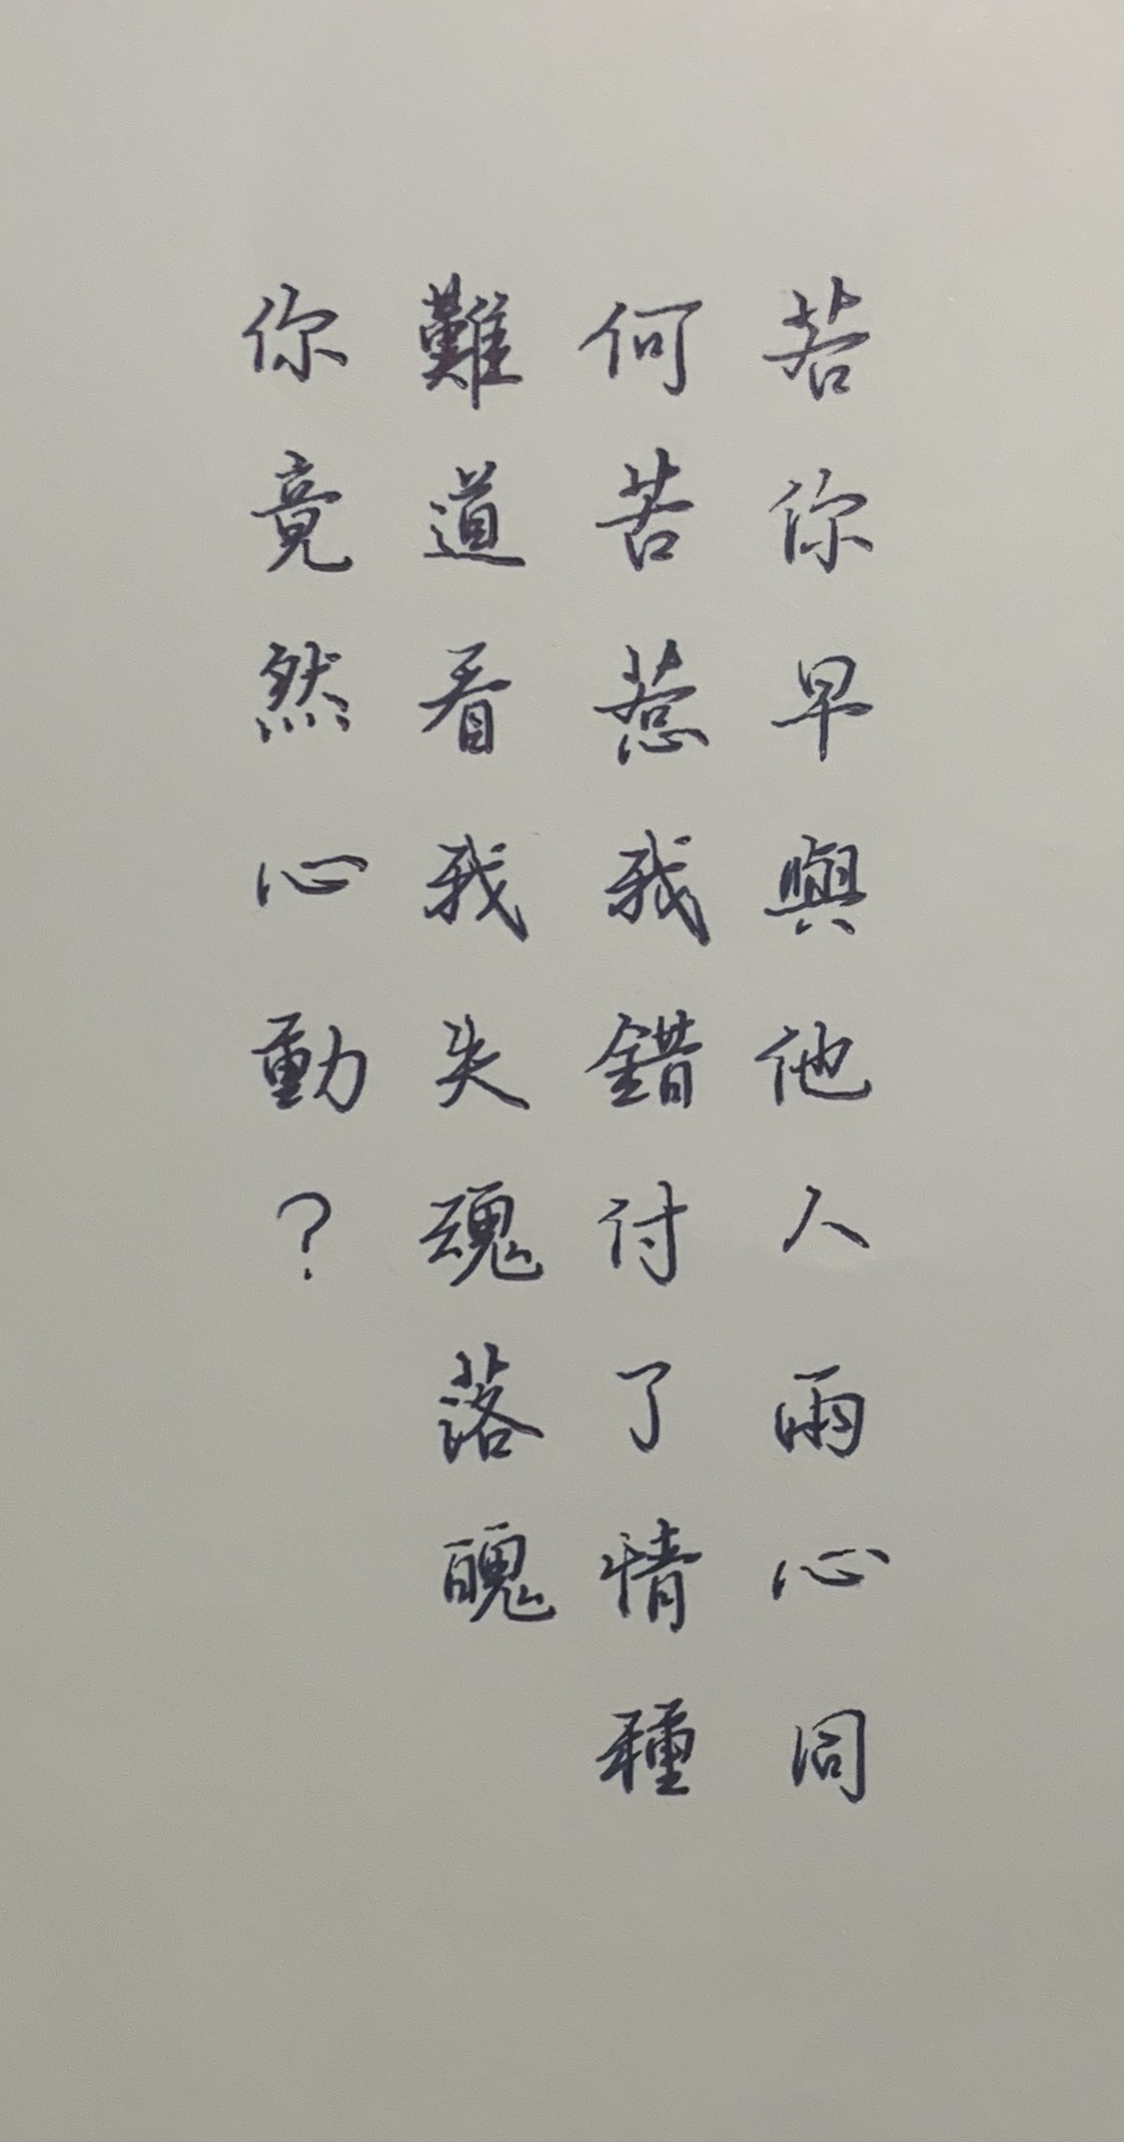 若你早與他人兩心同
何苦惹我錯付了情種
難道看我失魂落魄
你竟然心動？